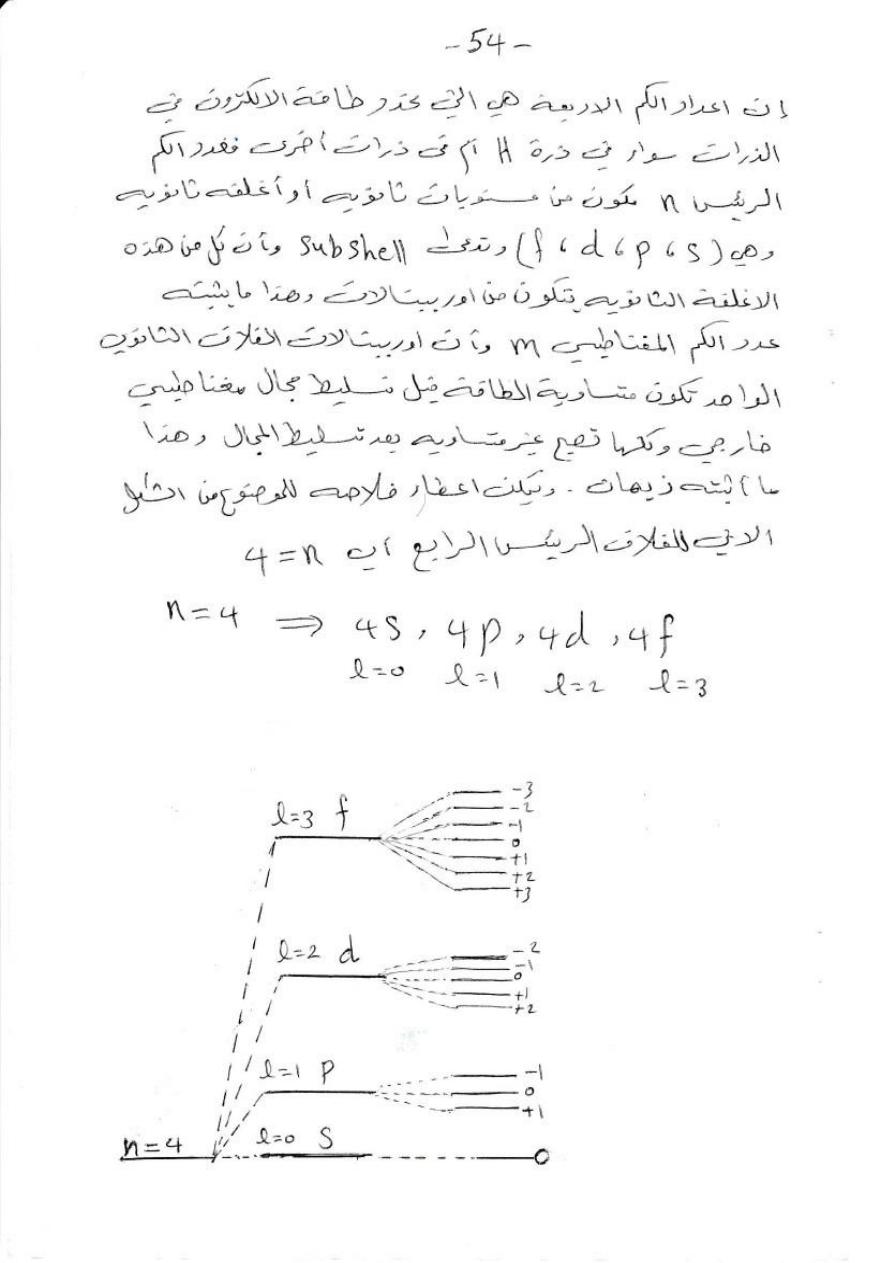 -54-
إن اعداد الكم الاربعة هي التي تحدد طاقة الالكترون في
الذرات سواء في ذرة H أم في ذرات أخرى فعدد الكم
الرئيس n مكون من مستويات ثانويه أو أغلفه ثانويه
وهي (s ، p ، d ، f) وتدعى subshell وأن كل من هذه
الاغلفة الثانويه يتكون من اوربيتالات وهذا ما يثبته
عدد الكم المغناطيسي m وأن اوربيتالات الغلاف الثانوي
الواحد تكون متساوية الطاقة قبل تسليط مجال مغناطيسي
خارجي ولكنها تصبح غير متساويه بعد تسليط المجال وهذا
ما أثبته زيمان . ويمكن اعطاء خلاصه للموضوع من الشكل
الاتي للغلاف الرئيس الرابع أي n=4
n=4 ⇒ 4s, 4p, 4d, 4f
l=0 l=1 l=2 l=3
l=3 f
-3
-2
-1
0
+1
+2
+3
l=2 d
-2
-1
0
+1
+2
l=1 p
-1
0
+1
n=4
l=0 s
0